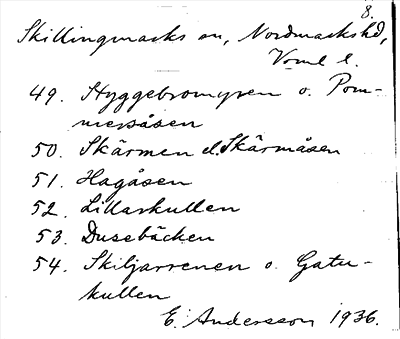 8.
Skillingmarks sn, Nordmarks hd,
Verml l.
49. Styggebromyren o. Pom-
mersåsen
50. Skärmen el. Skärmåsen
51. Hagåsen
52. Lillarkullen
53. Dusebäcken
54. Skiljarrenen o. Gatu-
kullen
E. Andersson 1936.